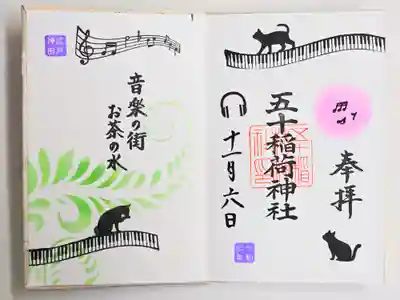 奉拝
五十稲荷神社
十一月六日
音楽の街
お茶の水
江戸
神田